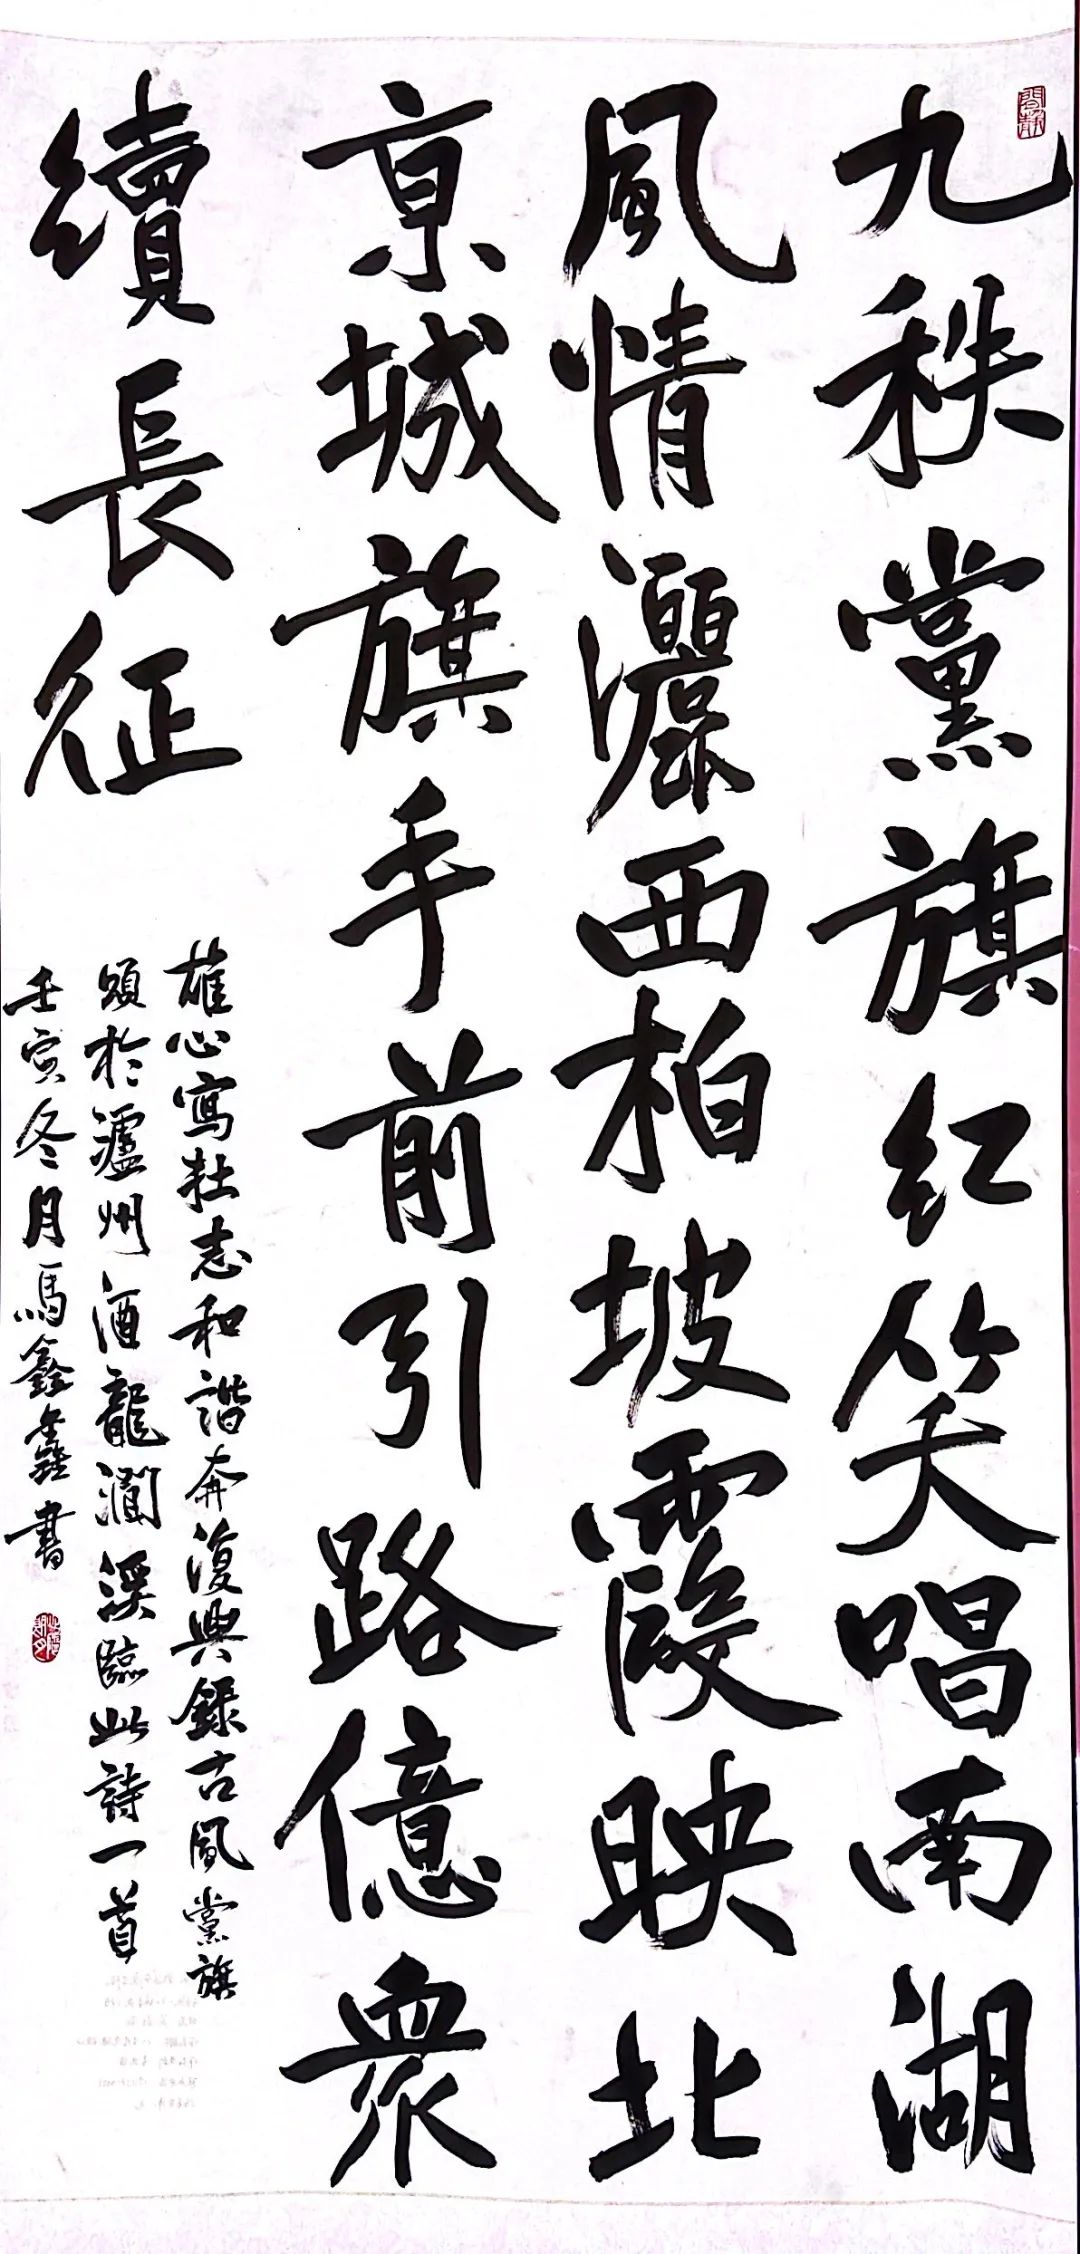 九秩黨旗红笑唱南湖
風情灑西柏坡霞映北
京城旗手前引路億衆
續長征
雄心寫壮志和諧奔復興錄古風黨旗
頌於瀘州酒龍澗溪臨此詩一首
壬寅冬月馬鑫鑫書